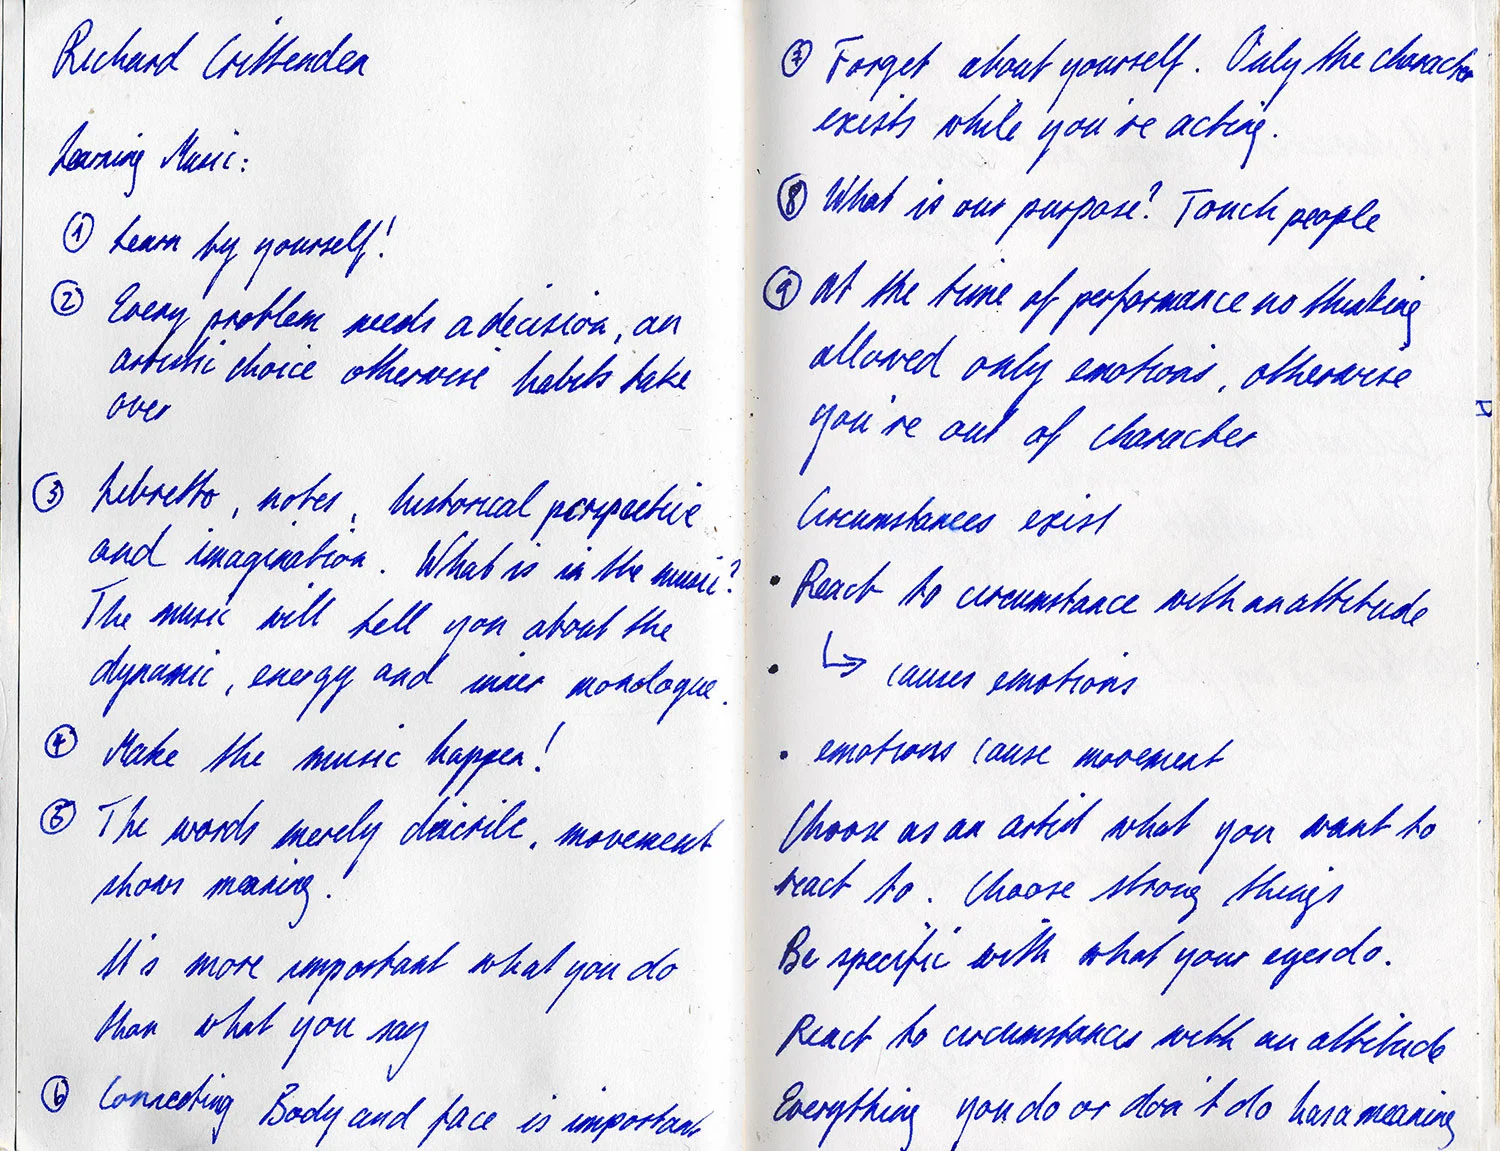 Richard Crittenden
Learning Music:
① Learn by yourself!
② Every problem needs a decision, an
artistic choice otherwise habits take
over
③ Libretto, notes, historical perspective
and imagination. What is in the music?
The music will tell you about the
dynamic, energy and inner monologue.
④ Make the music happen!
⑤ The words merely describe, movement
shows meaning.
It's more important what you do
than what you say
⑥ Connecting Body and face is important
⑦ Forget about yourself. Only the character
exists while you're acting.
⑧ What is our purpose? Touch people
⑨ At the time of performance no thinking
allowed only emotions, otherwise
you're out of character
Circumstances exist
• React to circumstance with an attitude
• ↳ causes emotions
• emotions cause movement
Choose as an artist what you want to
react to. Choose strong things
Be specific with what your eyes do.
React to circumstances with an attitude
Everything you do or don't do has a meaning